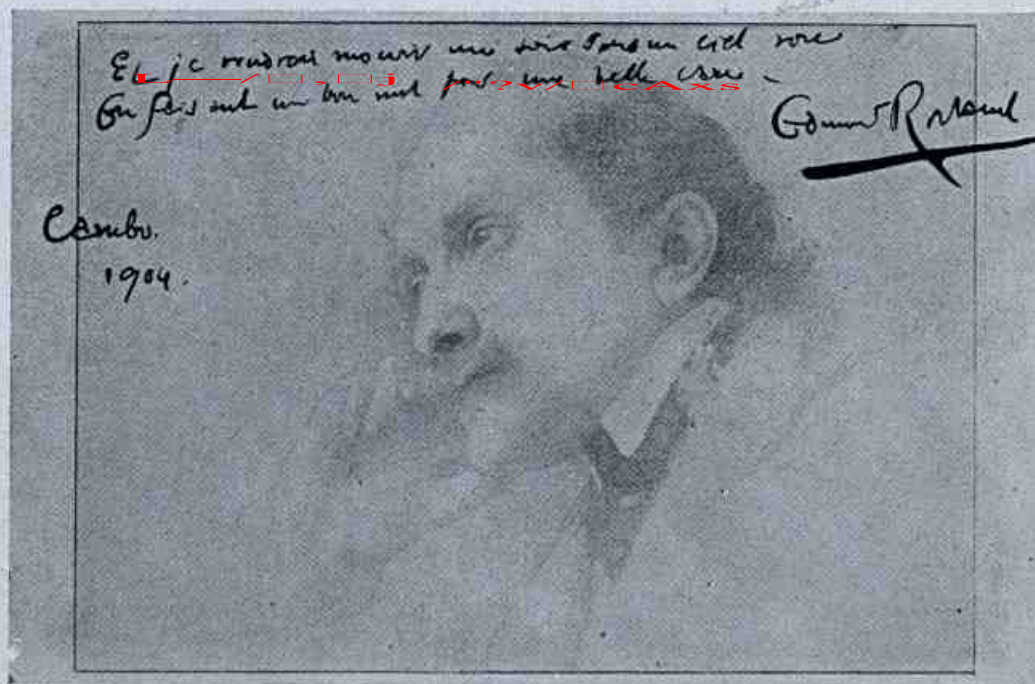 Et je voudrais mourir un soir sous un ciel rose
En faisant un bon mot pour une belle cause -
Edmond Rostand
Cambo.
1904.